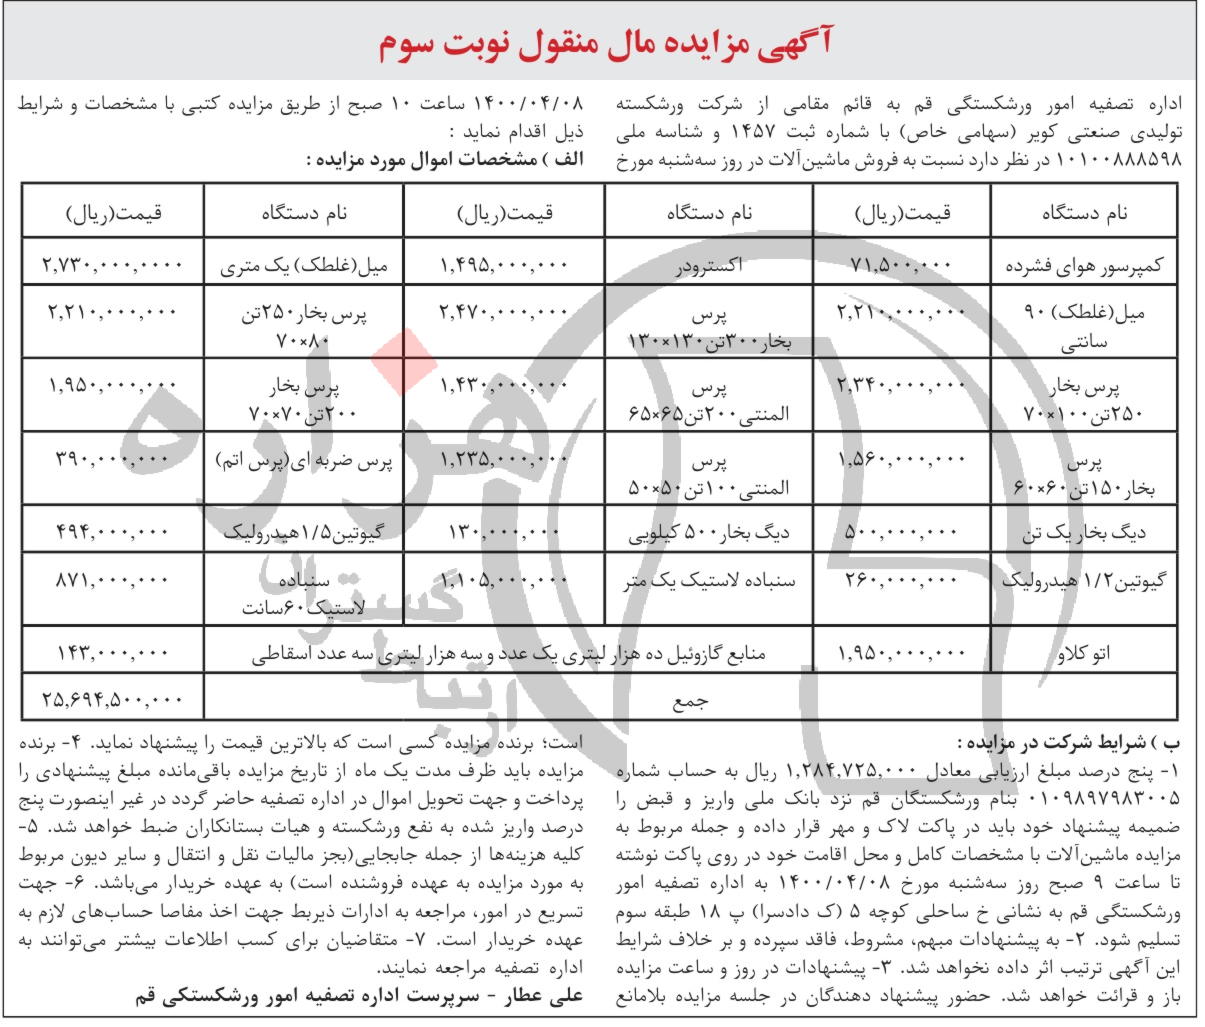 آگهی مزایده مال منقول نوبت سوم
اداره تصفیه امور ورشکستگی قم به قائم مقامی از شرکت ورشکسته
تولیدی صنعتی کویر (سهامی خاص) با شماره ثبت ۱۴۵۷ و شناسه ملی
۱۰۱۰۰۸۸۸۵۹۸ در نظر دارد نسبت به فروش ماشین‌آلات در روز سه‌شنبه مورخ
۱۴۰۰/۰۴/۰۸ ساعت ۱۰ صبح از طریق مزایده کتبی با مشخصات و شرایط
ذیل اقدام نماید :
الف ) مشخصات اموال مورد مزایده :
نام دستگاه قیمت(ریال) نام دستگاه قیمت(ریال) نام دستگاه قیمت(ریال)
کمپرسور هوای فشرده ۷۱,۵۰۰,۰۰۰ اکسترودر ۱,۴۹۵,۰۰۰,۰۰۰ میل(غلطک) یک متری ۲,۷۳۰,۰۰۰,۰۰۰۰
میل(غلطک) ۹۰ ۲,۲۱۰,۰۰۰,۰۰۰ پرس ۲,۴۷۰,۰۰۰,۰۰۰ پرس بخار۲۵۰تن ۲,۲۱۰,۰۰۰,۰۰۰
سانتی بخار۳۰۰تن۱۳۰×۱۳۰ ۸۰×۷۰
پرس بخار ۲,۳۴۰,۰۰۰,۰۰۰ پرس ۱,۴۳۰,۰۰۰,۰۰۰ پرس بخار ۱,۹۵۰,۰۰۰,۰۰۰
۲۵۰تن۱۰۰×۷۰ المنتی۲۰۰تن۶۵×۶۵ ۲۰۰تن۷۰×۷۰
پرس ۱,۵۶۰,۰۰۰,۰۰۰ پرس ۱,۲۳۵,۰۰۰,۰۰۰ پرس ضربه ای(پرس اتم) ۳۹۰,۰۰۰,۰۰۰
بخار۱۵۰تن۶۰×۶۰ المنتی۱۰۰تن۵۰×۵۰
دیگ بخار یک تن ۵۰۰,۰۰۰,۰۰۰ دیگ بخار۵۰۰ کیلویی ۱۳۰,۰۰۰,۰۰۰ گیوتین۱/۵هیدرولیک ۴۹۴,۰۰۰,۰۰۰
گیوتین۱/۲ هیدرولیک ۲۶۰,۰۰۰,۰۰۰ سنباده لاستیک یک متر ۱,۱۰۵,۰۰۰,۰۰۰ سنباده ۸۷۱,۰۰۰,۰۰۰
لاستیک۶۰سانت
اتو کلاو ۱,۹۵۰,۰۰۰,۰۰۰ منابع گازوئیل ده هزار لیتری یک عدد و سه هزار لیتری سه عدد اسقاطی ۱۴۳,۰۰۰,۰۰۰
جمع ۲۵,۶۹۴,۵۰۰,۰۰۰
ب ) شرایط شرکت در مزایده :
۱- پنج درصد مبلغ ارزیابی معادل ۱,۲۸۴,۷۲۵,۰۰۰ ریال به حساب شماره
۰۱۰۹۸۹۷۹۸۳۰۰۵ بنام ورشکستگان قم نزد بانک ملی واریز و قبض را
ضمیمه پیشنهاد خود باید در پاکت لاک و مهر قرار داده و جمله مربوط به
مزایده ماشین‌آلات با مشخصات کامل و محل اقامت خود در روی پاکت نوشته
تا ساعت ۹ صبح روز سه‌شنبه مورخ ۱۴۰۰/۰۴/۰۸ به اداره تصفیه امور
ورشکستگی قم به نشانی خ ساحلی کوچه ۵ (ک دادسرا) پ ۱۸ طبقه سوم
تسلیم شود. ۲- به پیشنهادات مبهم، مشروط، فاقد سپرده و بر خلاف شرایط
این آگهی ترتیب اثر داده نخواهد شد. ۳- پیشنهادات در روز و ساعت مزایده
باز و قرائت خواهد شد. حضور پیشنهاد دهندگان در جلسه مزایده بلامانع
است؛ برنده مزایده کسی است که بالاترین قیمت را پیشنهاد نماید. ۴- برنده
مزایده باید ظرف مدت یک ماه از تاریخ مزایده باقی‌مانده مبلغ پیشنهادی را
پرداخت و جهت تحویل اموال در اداره تصفیه حاضر گردد در غیر اینصورت پنج
درصد واریز شده به نفع ورشکسته و هیات بستانکاران ضبط خواهد شد. ۵-
کلیه هزینه‌ها از جمله جابجایی(بجز مالیات نقل و انتقال و سایر دیون مربوط
به مورد مزایده به عهده فروشنده است) به عهده خریدار می‌باشد. ۶- جهت
تسریع در امور، مراجعه به ادارات ذیربط جهت اخذ مفاصا حساب‌های لازم به
عهده خریدار است. ۷- متقاضیان برای کسب اطلاعات بیشتر می‌توانند به
اداره تصفیه مراجعه نمایند.
علی عطار - سرپرست اداره تصفیه امور ورشکستکی قم
هزاره
گستران
ارتباط